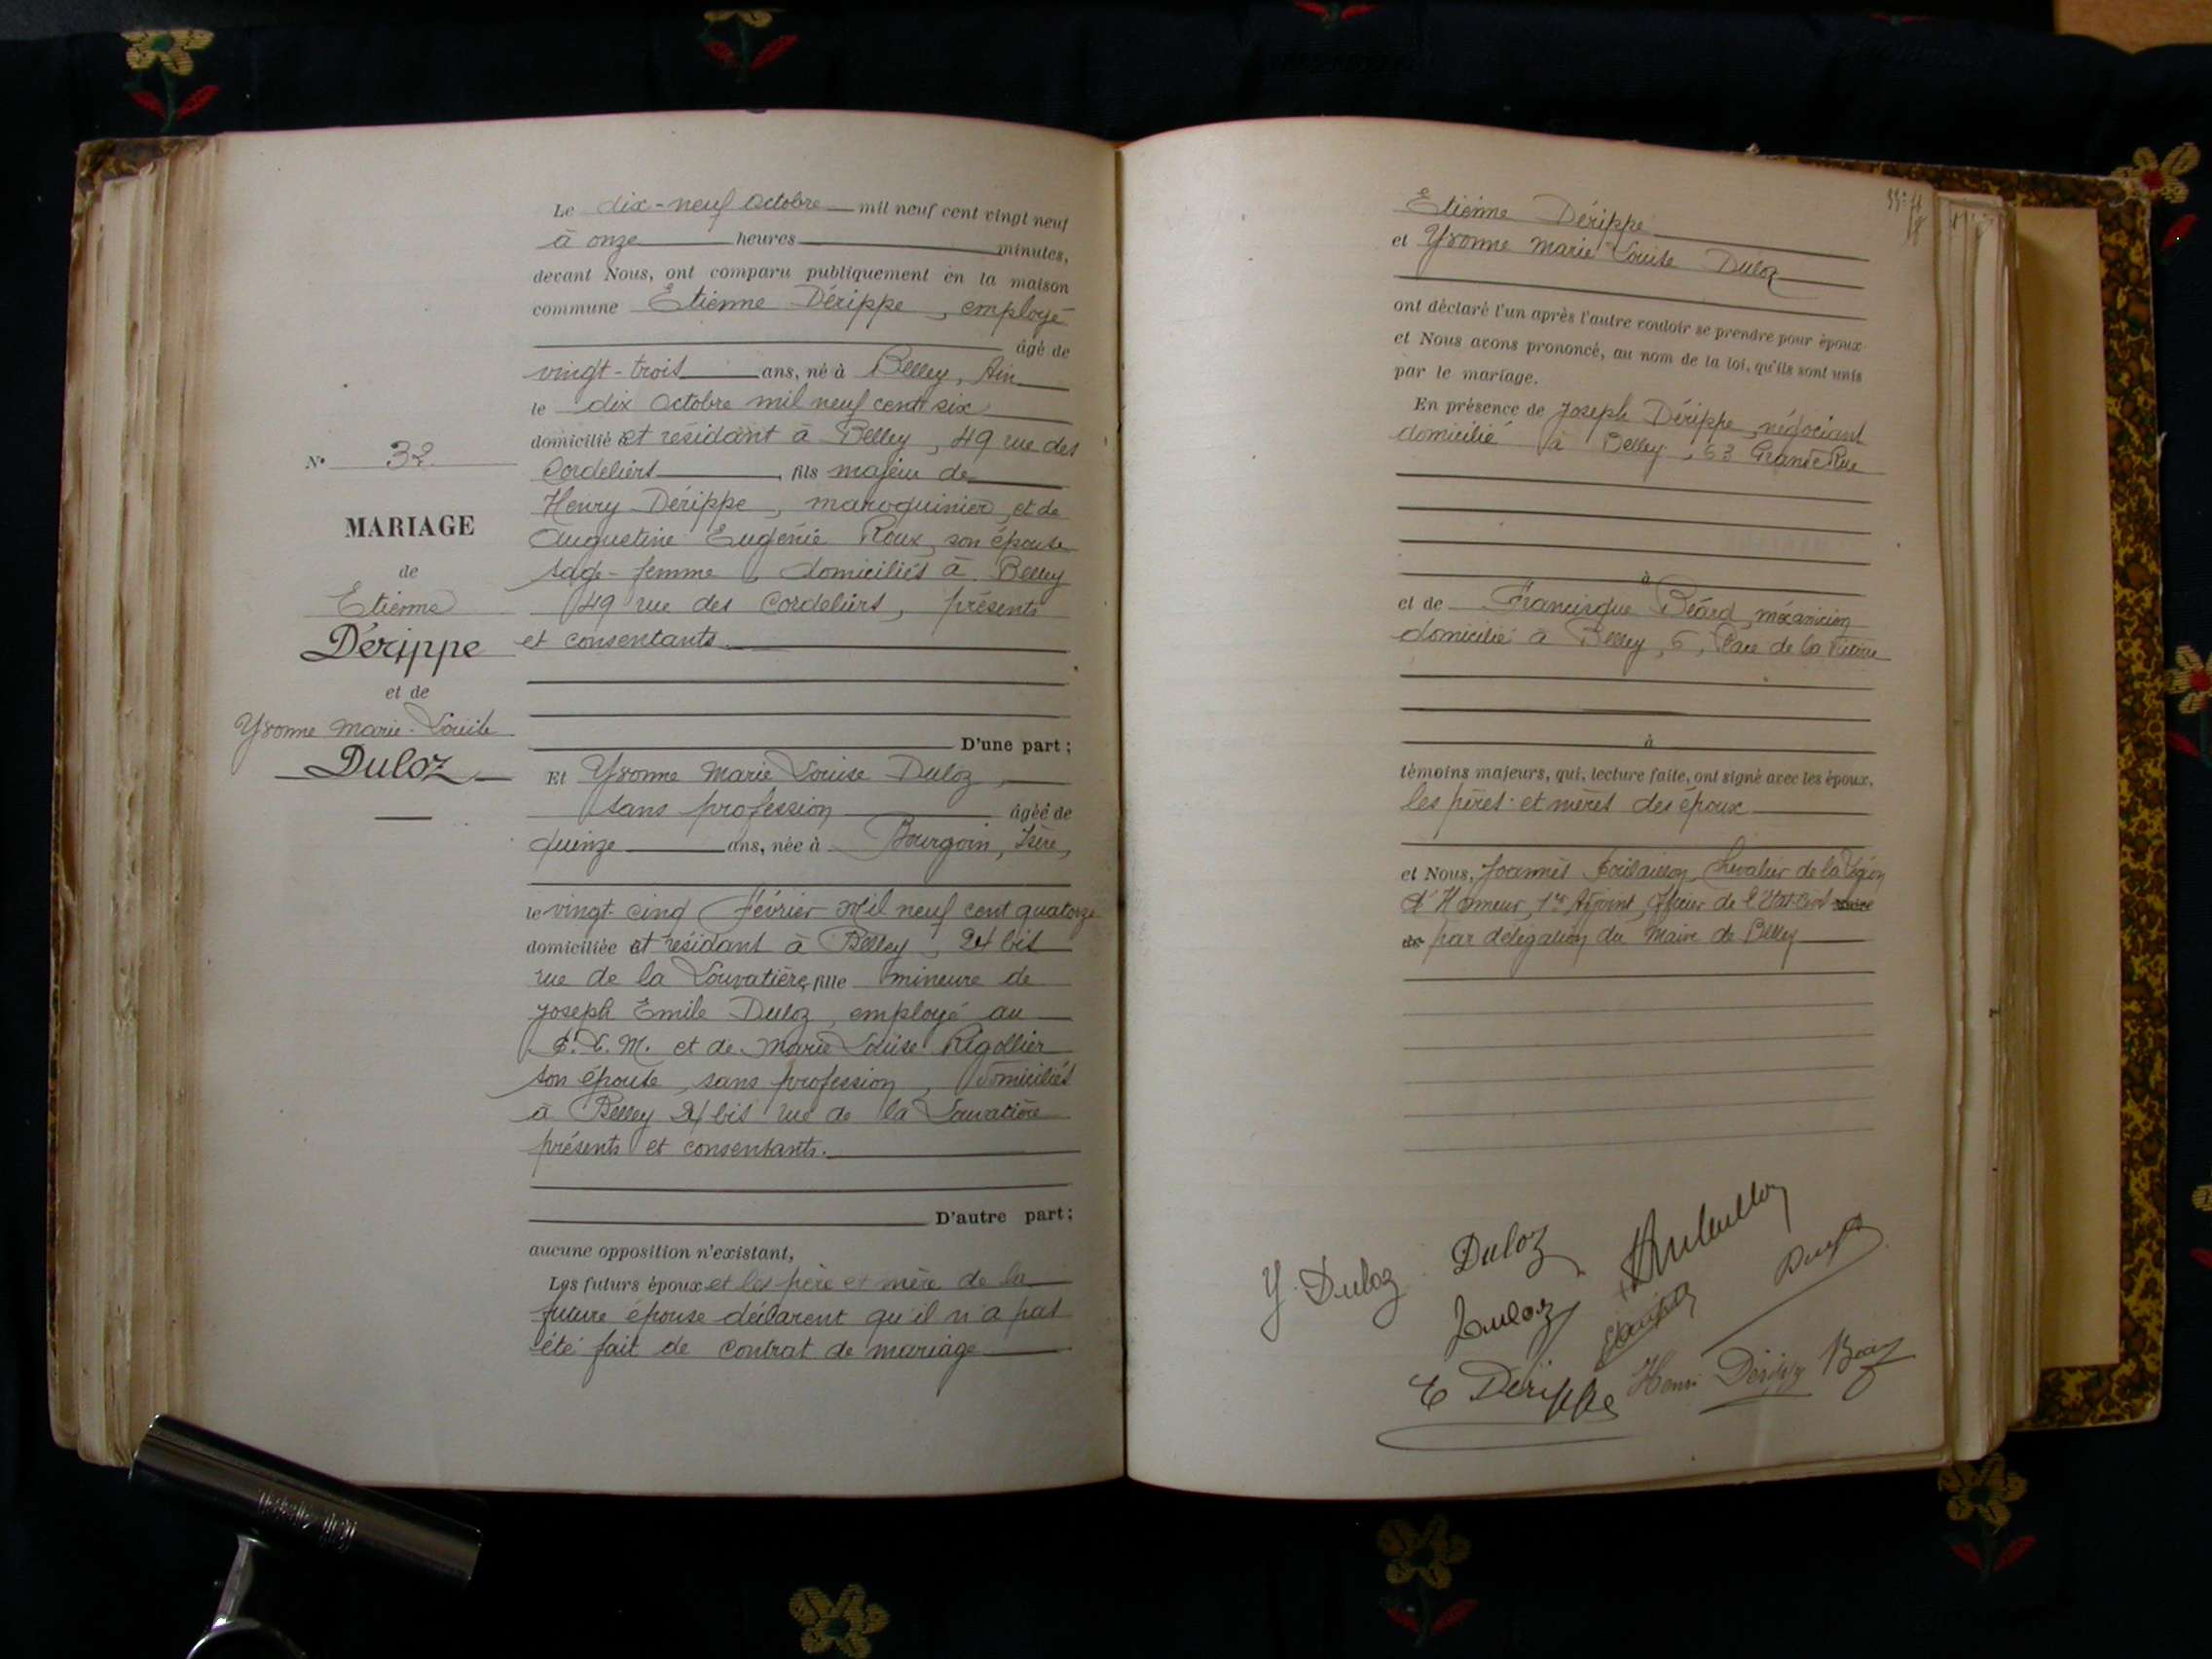 Le dix-neuf Octobre mil neuf cent vingt neuf
à onze heures minutes,
devant Nous, ont comparu publiquement en la maison
commune Etienne Dérippe, employé
âgé de
vingt-trois ans, né à Belley, Ain
le dix Octobre mil neuf cent six
domicilié et résidant à Belley, 49 rue des
Cordeliers, fils majeur de
Henry Dérippe, maroquinier, et de
Augustine Eugénie Roux, son épouse
sage-femme, domiciliés à Belley
49 rue des Cordeliers, présents
et consentants
D'une part;
N° 32
MARIAGE
de
Etienne
Dérippe
et de
Yvonne Marie-Louise
Duloz
Et Yvonne Marie Louise Duloz,
sans profession âgée de
quinze ans, née à Bourgoin, Isère,
le vingt-cinq Février Mil neuf cent quatorze
domiciliée et résidant à Belley, 24 bis
rue de la Louvatière, fille mineure de
Joseph Emile Duloz, employé au
P.L.M. et de Marie Louise Rigollier
son épouse, sans profession, domiciliés
à Belley 24 bis rue de la Louvatière
présents et consentants.
D'autre part;
aucune opposition n'existant,
Les futurs époux et les père et mère de la
future épouse déclarent qu'il n'a pas
été fait de contrat de mariage
Etienne Dérippe
et Yvonne Marie Louise Duloz
ont déclaré l'un après l'autre vouloir se prendre pour époux
et Nous avons prononcé, au nom de la loi, qu'ils sont unis
par le mariage.
En présence de Joseph Dérippe, négociant
domicilié à Belley, 63 Grande Rue
à
et de Francisque Béard, mécanicien
domicilié à Belley, 6, Place de la Victoire
à
témoins majeurs, qui, lecture faite, ont signé avec les époux,
les pères et mères des époux
et Nous, Joannès Chevalier de la Légion
d'Honneur, 1er Adjoint, Officier de l'Etat-Civil maire
de par délégation du Maire de Belley
Y. Duloz
Duloz
Duloz
E Dérippe
Henri Dérippe